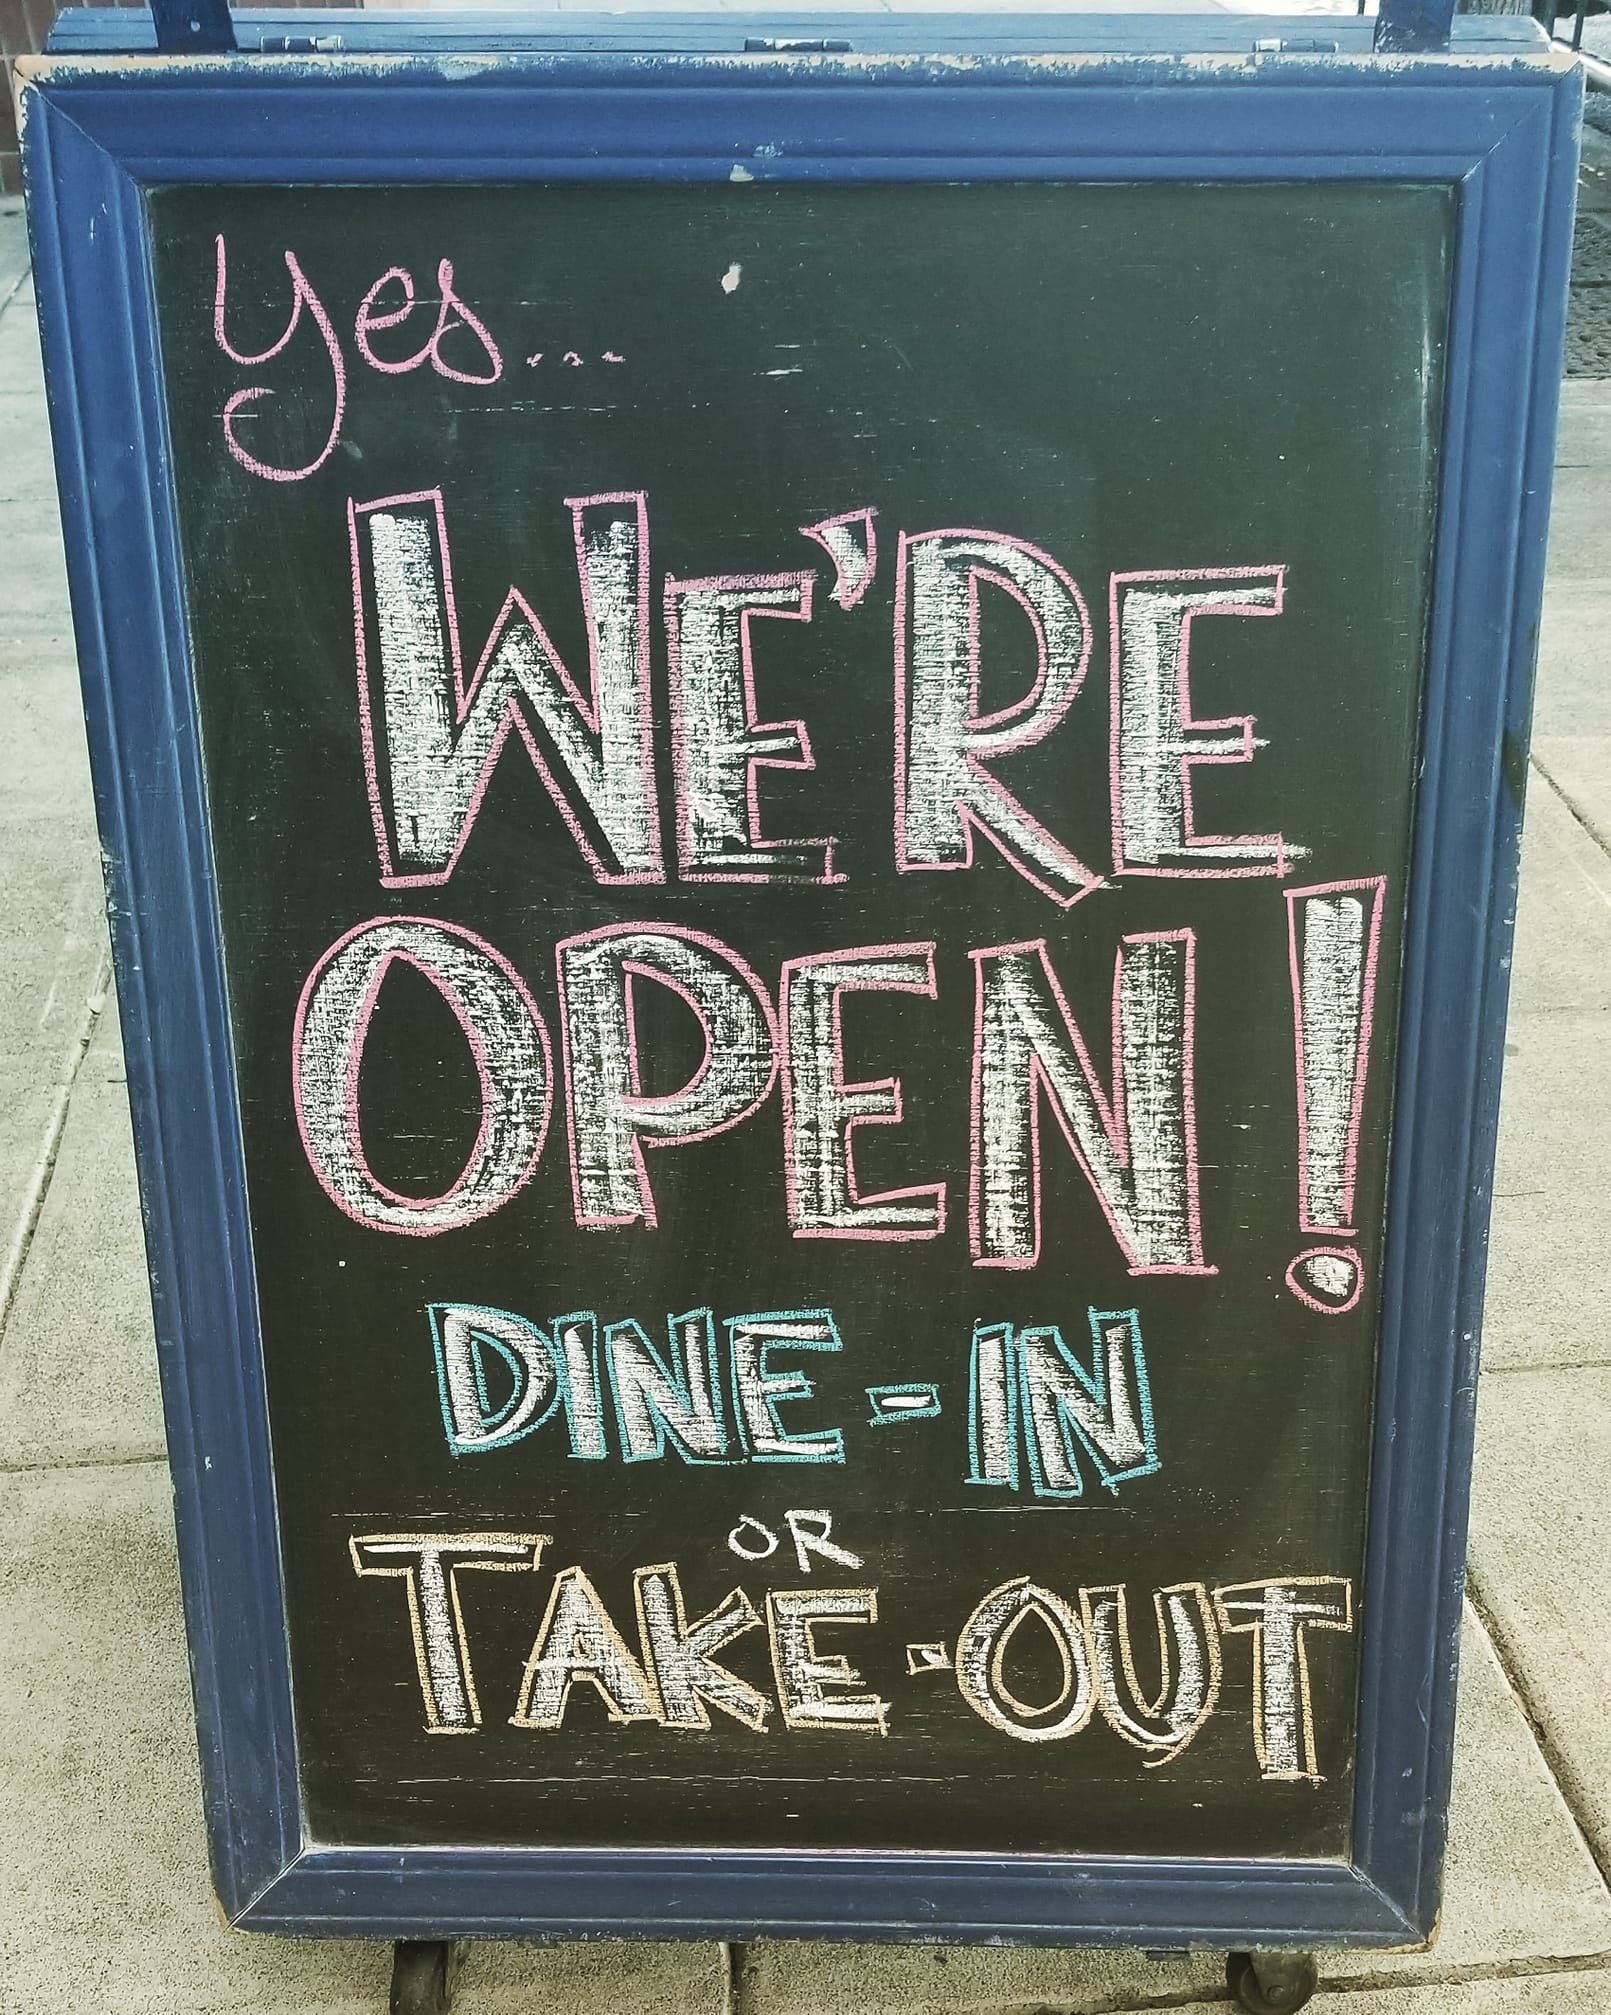 yes...
WE'RE
OPEN!
DINE-IN
OR
TAKE-OUT